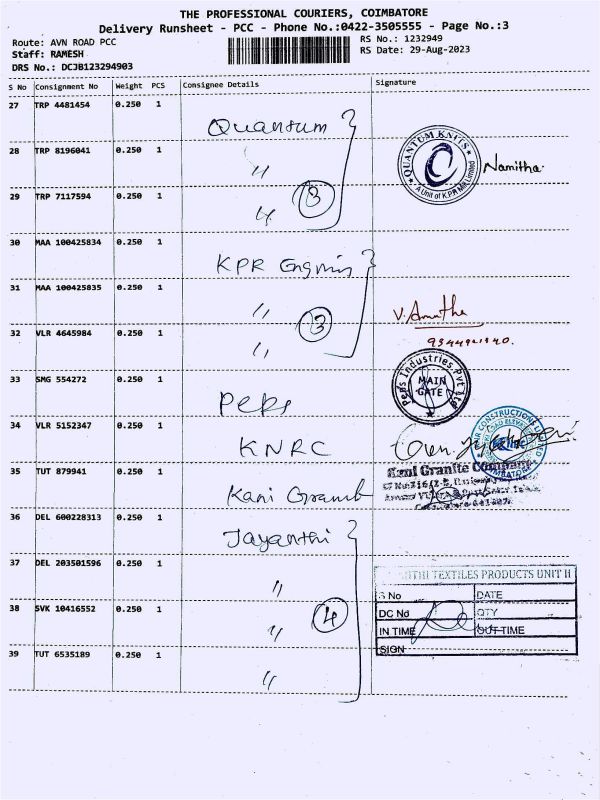 THE PROFESSIONAL COURIERS, COIMBATORE
Delivery Runsheet - PCC - Phone No.:0422-3505555 - Page No.:3
Route: AVN ROAD PCC
RS No.: 1232949
Staff: RAMESH
RS Date: 29-Aug-2023
DRS No.: DCJB123294903
S No Consignment No Weight PCS Consignee Details Signature
27 TRP 4481454 0.250 1
Quantum
28 TRP 8196041 0.250 1
〃
QUANTUM KNITS
A Unit of K.P.R Mill Limited
Namitha.
29 TRP 7117594 0.250 1
〃 3
30 MAA 100425834 0.250 1
KPR
31 MAA 100425835 0.250 1
〃 3
V. Amutha
32 VLR 4645984 0.250 1
〃
33 SMG 554272 0.250 1
Peps
Peps Industries Pvt Ltd
MAIN GATE
34 VLR 5152347 0.250 1
KNRC
35 TUT 879941 0.250 1
Kani
Kani Granite Company
36 DEL 600228313 0.250 1
Jayanthi
37 DEL 203501596 0.250 1
〃
TEXTILES PRODUCTS UNIT II
S No DATE
38 SVK 10416552 0.250 1
〃 4
DC No QTY
IN TIME OUT TIME
SIGN
39 TUT 6535189 0.250 1
〃